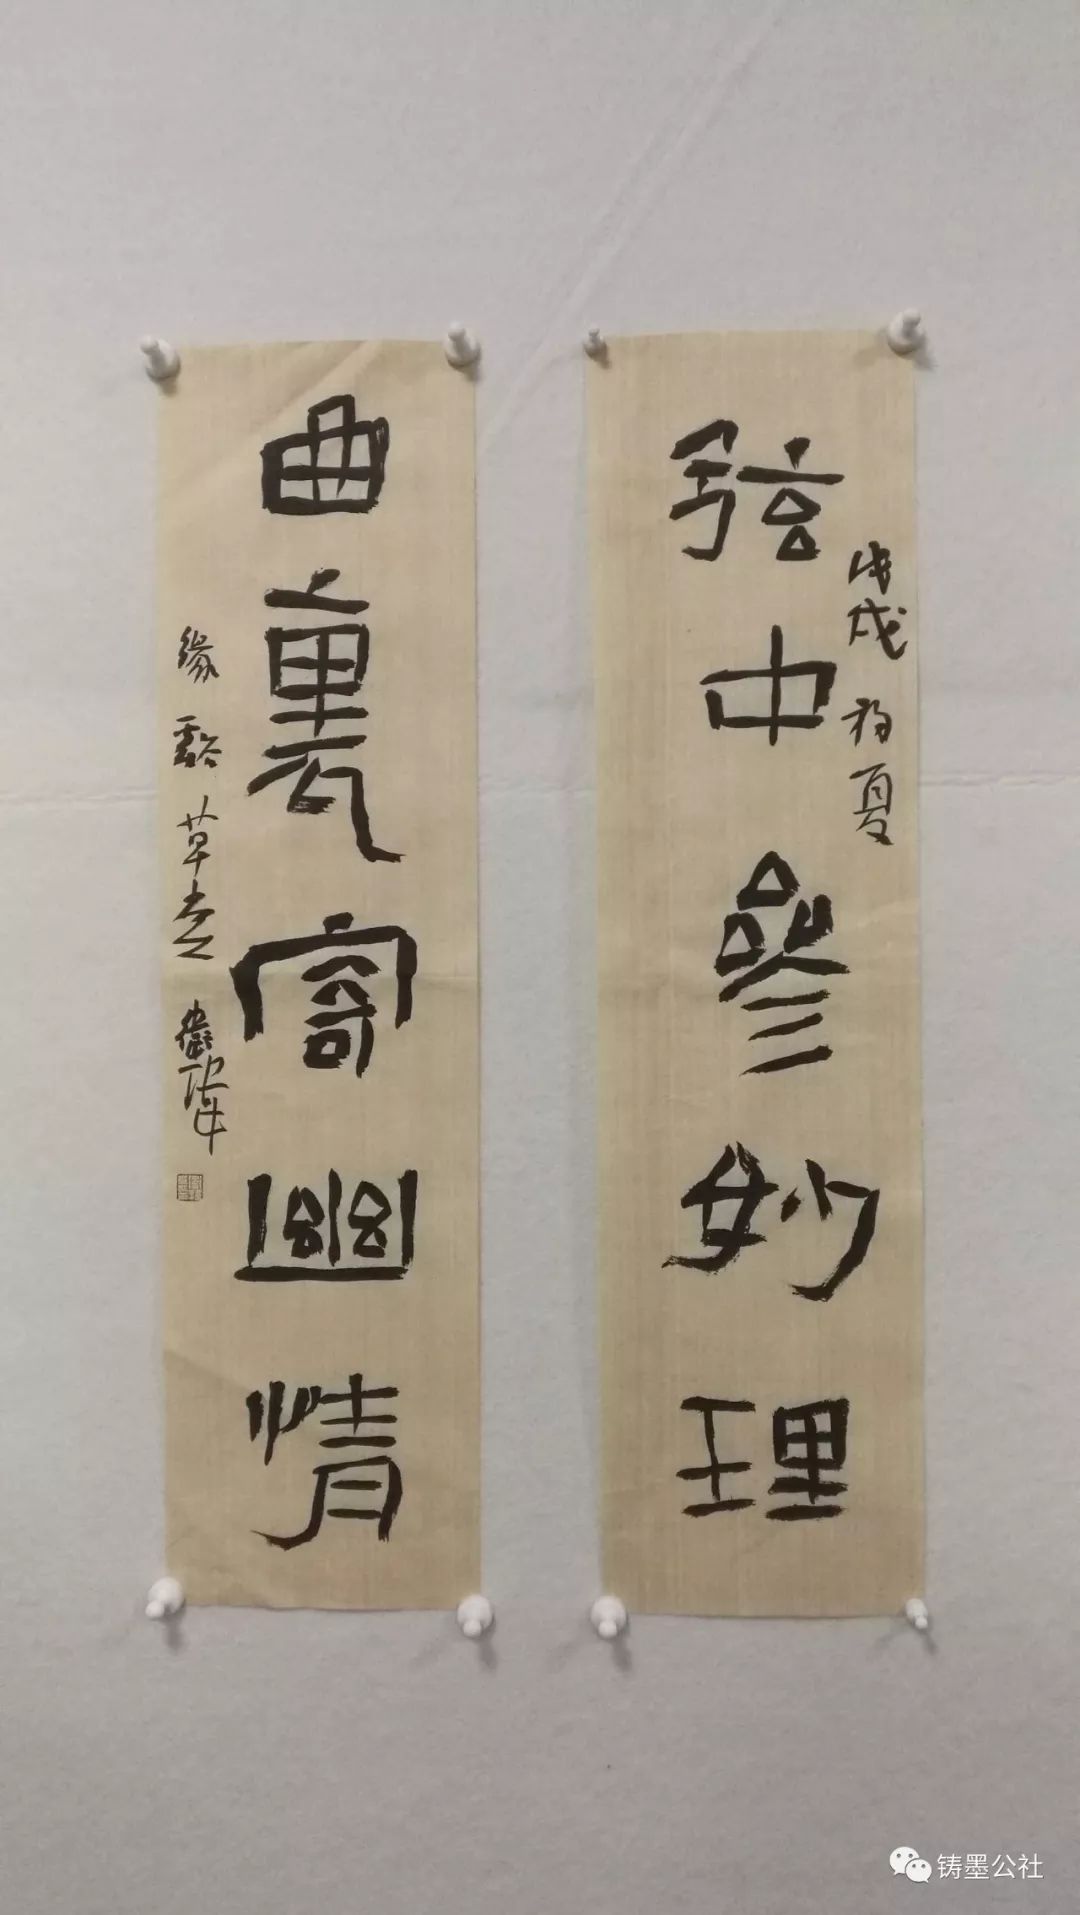 弦中參妙理
戊戌初夏
曲裏寄幽情
草堂
铸墨公社